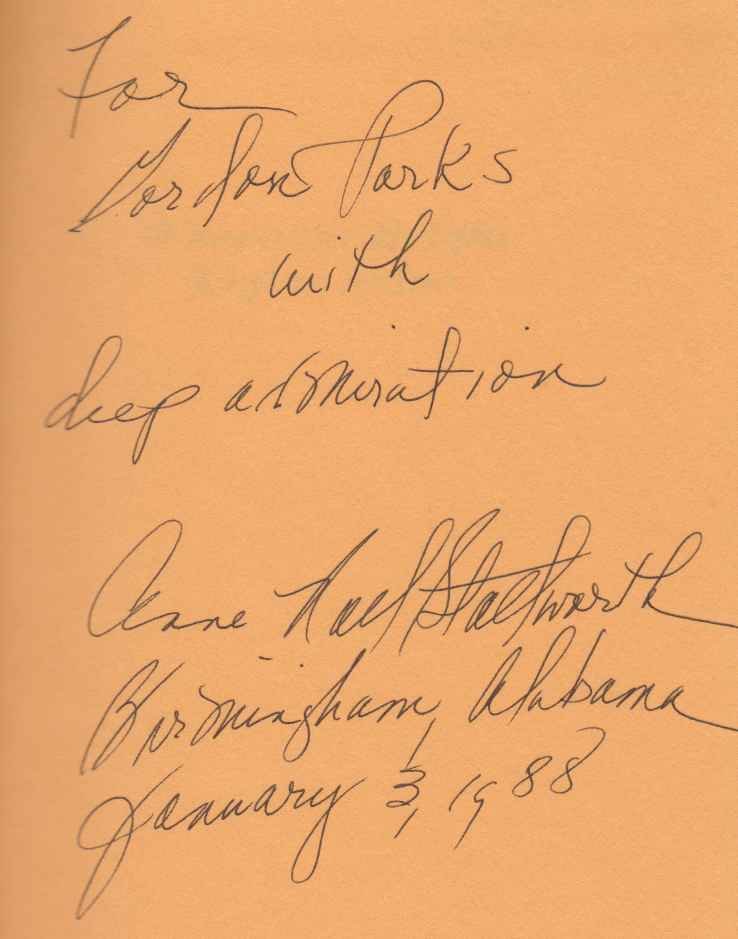 For
Gordon Parks
with
deep admiration
Anne Nall Stallworth
Birmingham, Alabama
January 3, 1988